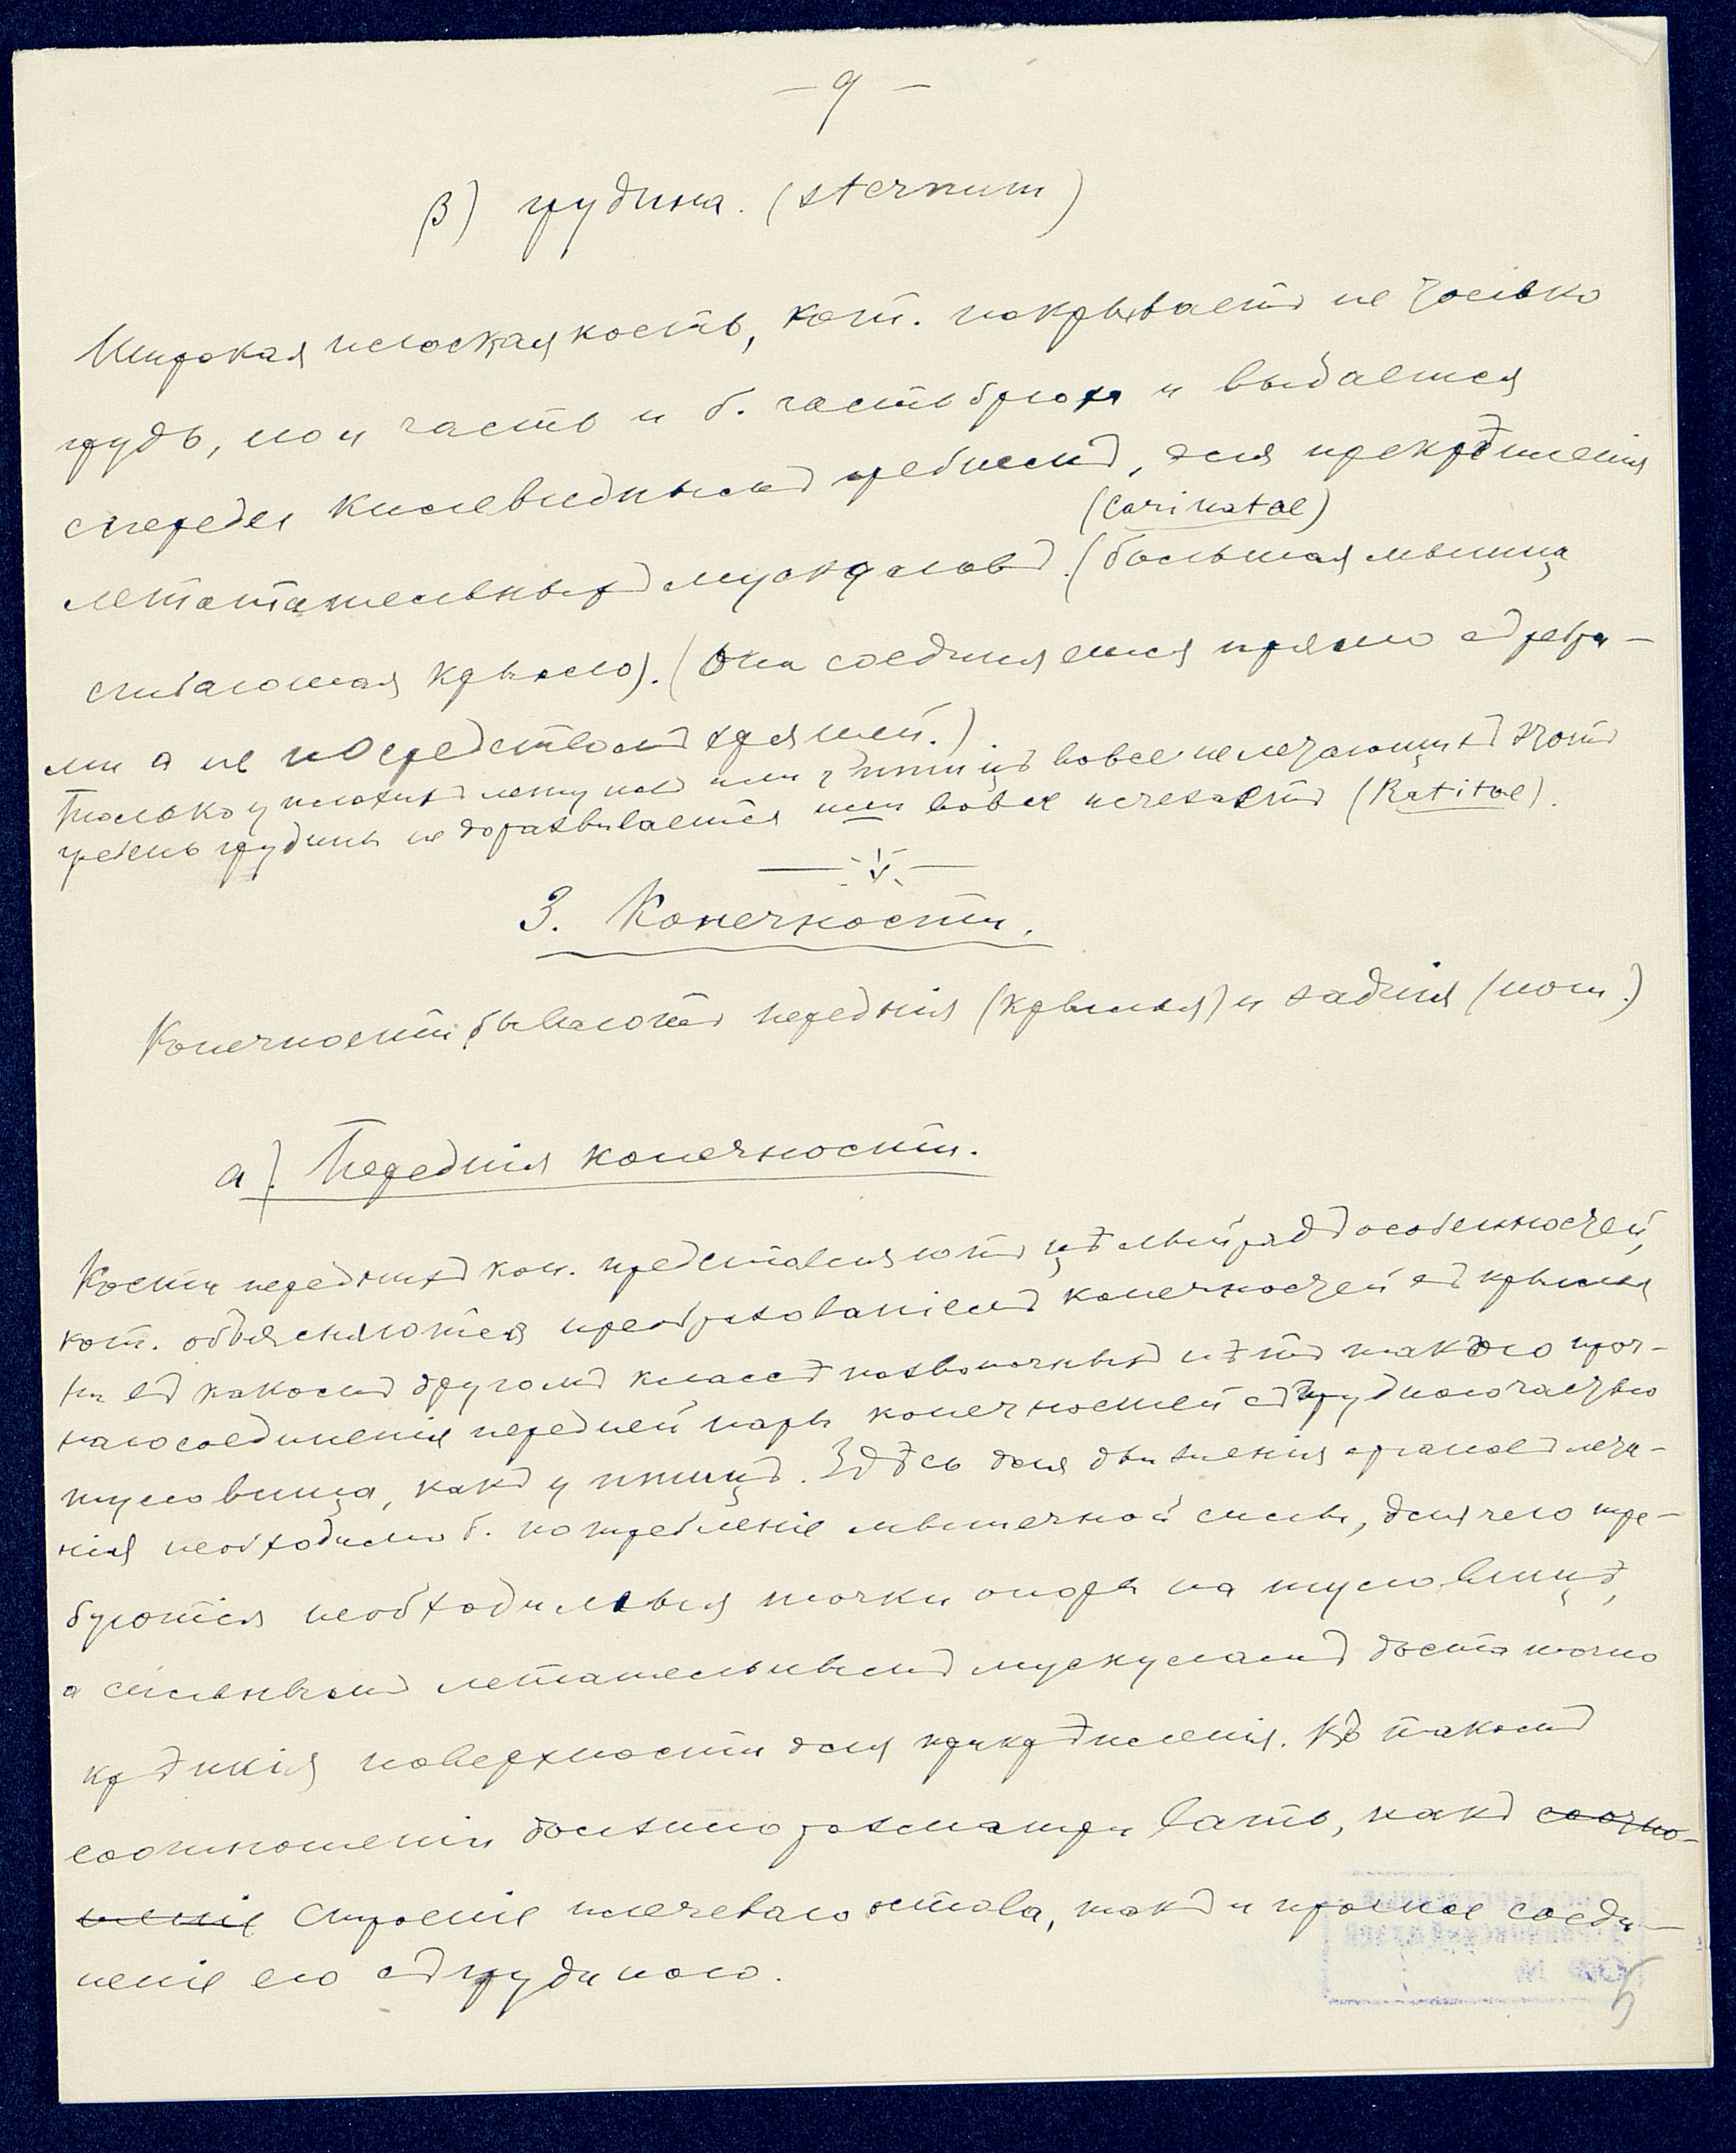 — 9 —
β) грудина. (sternum)
Широкая плоская кость, кот. покрываетъ не только
грудь, но и часть и б. часть брюха и выдается
спереди килевиднымъ гребнемъ, для прекрѣпленія
(Carinatae)
летательныхъ мускуловъ. (большая мышца
сгибающая крыло). (Она соединяется прямо съ ребра-
ми а не посредствомъ хрящей.)
Только у плохихъ летуновъ или у птицъ вовсе не летающихъ этотъ
гребень грудины не доразвивается или вовсе исчезаетъ (Ratitae).
3. Конечности.
Конечности бываютъ переднія (крылья) и заднія (ноги.)
а). Переднія конечности.
Кости переднихъ кон. представляютъ цѣлый рядъ особенностей,
кот. объясняются преобразованіемъ конечностей въ крылья
Ни въ какомъ другомъ классѣ позвоночныхъ нѣтъ такого проч-
наго соединенія передней пары конечностей съ грудною частью
туловища, какъ у птицъ. Здѣсь для движенія органовъ лета-
нія необходимо б. потребленіе мышечной силы, для чего тре-
буются необходимыя точки опоры на туловищѣ,
а сильнымъ летательнымъ мускуламъ достаточно
крѣпкія поверхности для прикрѣпленія. Въ такомъ
соотношеніи должно разсматривать, какъ соотно-
шеніе строеніе плечеваго остова, такъ и прочное соеди-
неніе его съ грудиною.
5